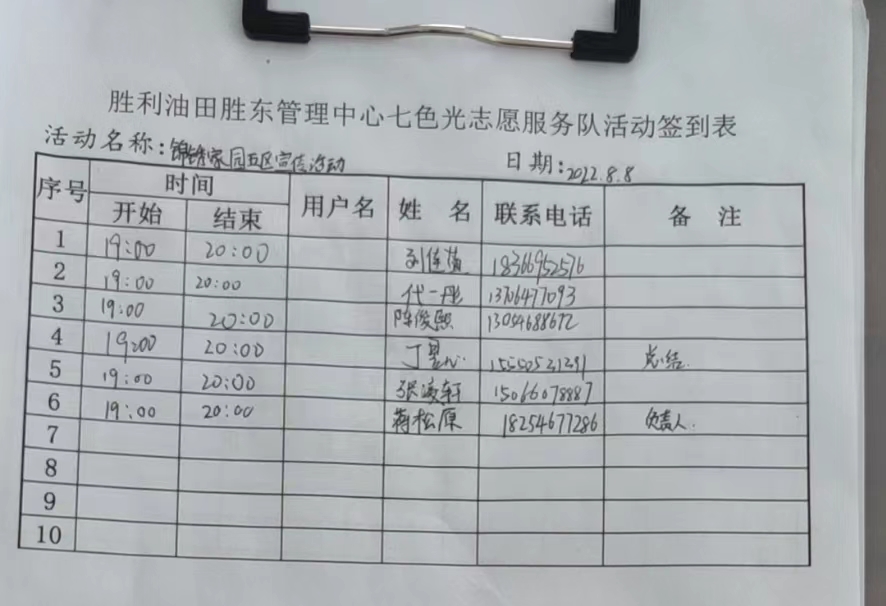 胜利油田胜东管理中心七色光志愿服务队活动签到表
活动名称:锦绣家园五区宣传活动 日期:2022.8.8
序号 时间 用户名 姓 名 联系电话 备 注
开始 结束
1 19:00 20:00 刘佳茵 18366952576
2 19:00 20:00 代一彤 13706477093
3 19:00 20:00 陈俊熙 13054688672
4 19:00 20:00 丁 总结
5 19:00 20:00 张凌轩 15066078887
6 19:00 20:00 蒋松原 18254677286 负责人.
7
8
9
10